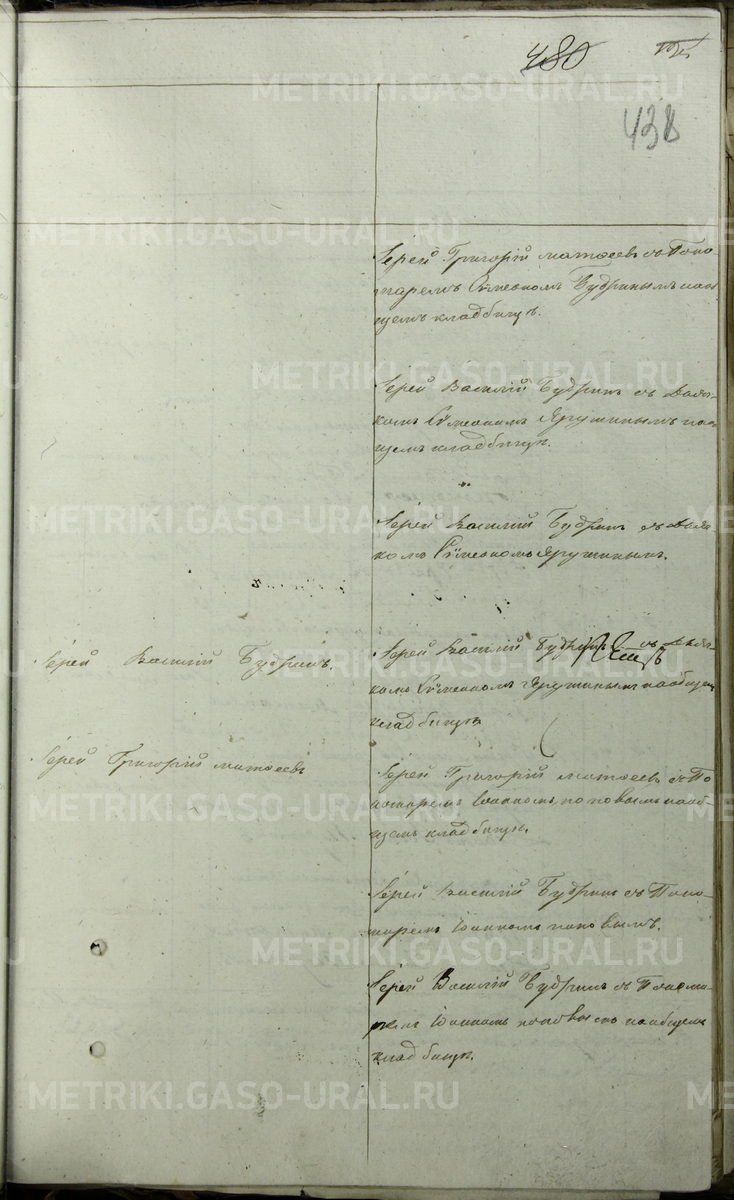 480
438
Іерей Григорій Матѳеев съ Поно-
маремъ Сѵмеономъ Будринымъ на об
щемъ кладбищѣ.
Іерей Василій Будринъ съ дьяч-
комъ Сѵмеономъ Яружинымъ на об
щемъ кладбищѣ.
Іерей Василій Будринъ съ дьяч
комъ Сѵмеономъ Яружинымъ.
Іерей Василій Будринъ съ дьяч-
комъ Сѵмеономъ Яружинымъ на общемъ
кладбищѣ
Іерей Василій Будринъ.
Іерей Григорій Матѳеевъ
Іерей Григорій Матѳеевъ съ По
номаремъ Іоанномъ Поповымъ на об-
щемъ кладбищѣ.
Іерей Василій Будринъ съ Поно-
маремъ Іоанномъ Поповымъ.
Іерей Василій Будринъ съ Понома-
ремъ Іоанномъ Поповымъ на общемъ
кладбищѣ.
METRIKI.GASO-URAL.RU